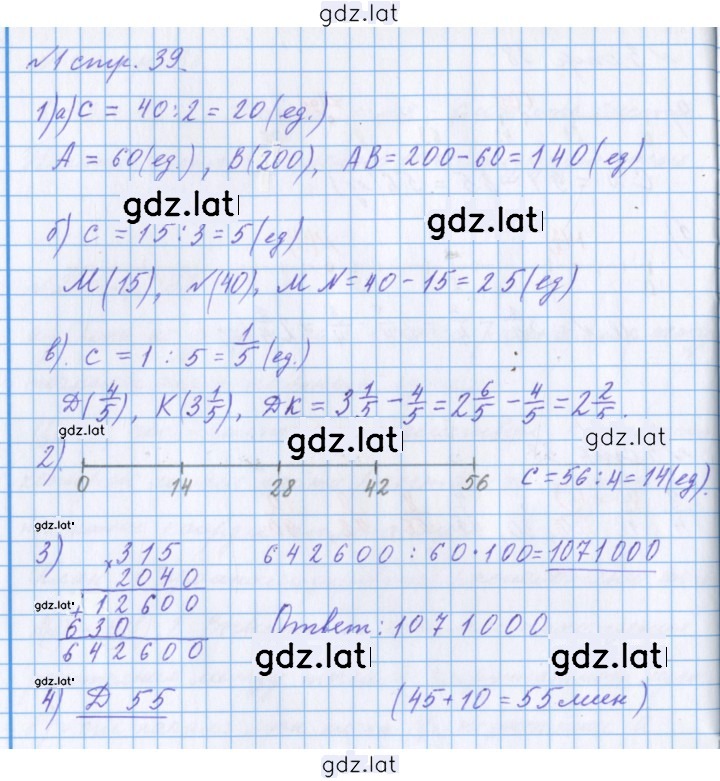 gdz.lat
№1 стр. 39
1)а) С = 40:2 = 20(ед.)
А = 60(ед), В(200), АВ = 200-60 = 140(ед)
gdz.lat gdz.lat
б) С = 15:3 = 5(ед)
М(15), N(40), МN = 40-15 = 25(ед)
в). С = 1 : 5 = 1/5 (ед.)
Д(4/5), К(3 1/5), ДК = 3 1/5 - 4/5 = 2 6/5 - 4/5 = 2 2/5.
gdz.lat gdz.lat gdz.lat
2). 0 14 28 42 56 С = 56:4 = 14(ед).
gdz.lat
3) × 315 642600 : 60·100 = 1071000
2040
gdz.lat + 12600
630 Ответ: 1071000
642600
gdz.lat gdz.lat gdz.lat
4) Д 55 (45+10 = 55мин)
gdz.lat